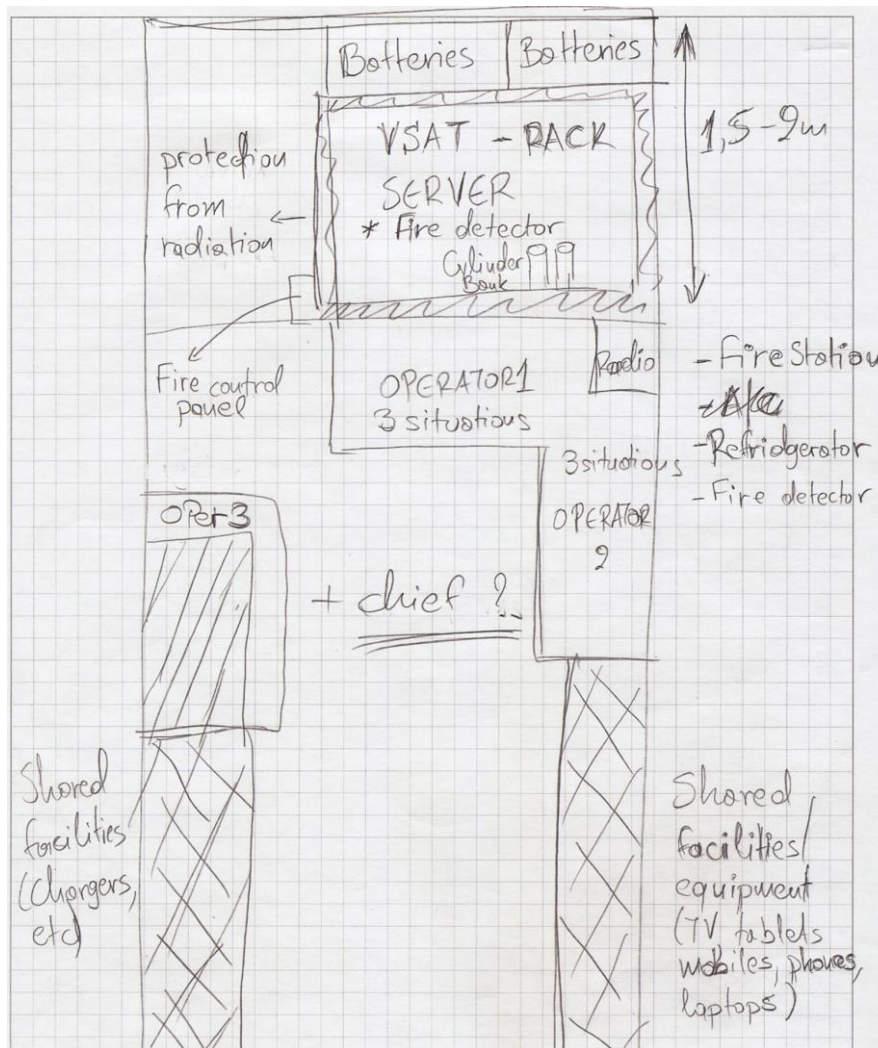 Batteries
Batteries
1,5-2m
VSAT - RACK
SERVER
* Fire detector
Cylinder
Bank
protection
from
radiation
Fire control
panel
OPERATOR1
3 situations
Radio
- Fire Station
- A/C
- Refridgerator
- Fire detector
3 situations
OPERATOR
2
OPer3
+ chief ?
Shared
facilities
(Chargers,
etc)
Shared
facilities/
equipment
(TV tablets
mobiles, phones,
laptops)